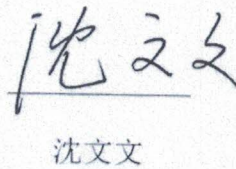 沈文文
沈文文